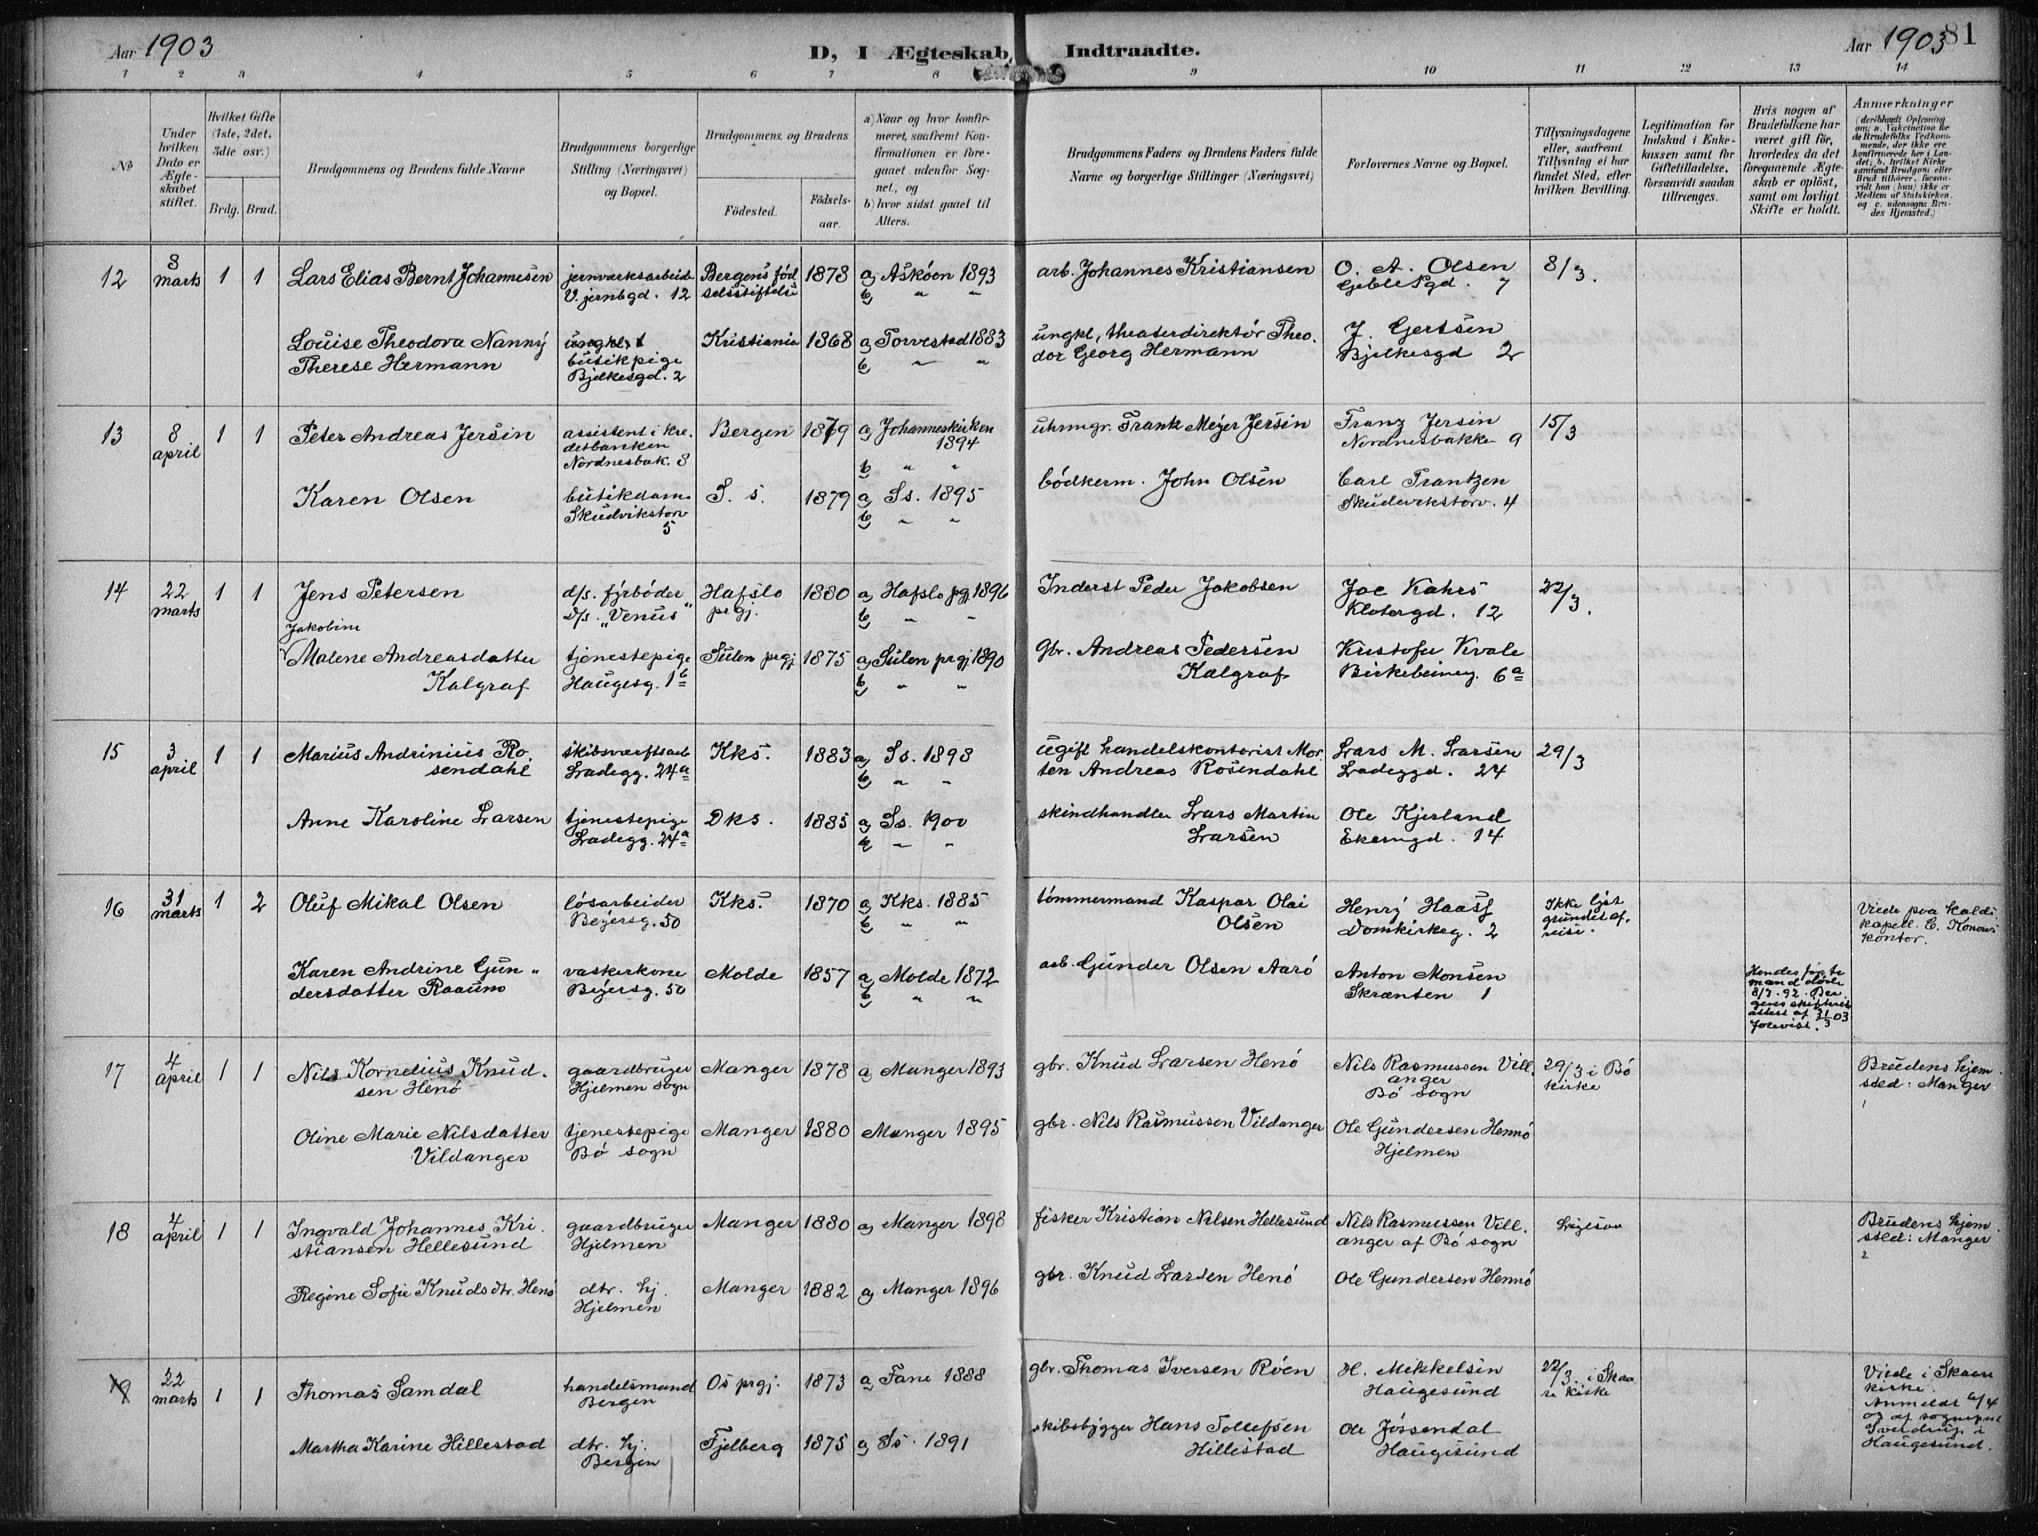 Aar 1903
D, I Ægteskab Indtraadte.
Aar 1903
81
1 2 3 4 5 6 7 8 9 10 11 12 13 14
No
Under hvilken Dato er Ægteskabet stiftet.
Hvilket Gifte (1ste, 2det, 3die osv.)
Brdg. Brud.
Brudgommens og Brudens fulde Navne
Brudgommens borgerlige Stilling (Næringsvei) og Bopæl.
Brudgommens og Brudens
Fødested. Fødselsaar.
a) Naar og hvor konfirmeret, saafremt Konfirmationen er foregaaet udenfor Sognet, og
b) hvor sidst gaaet til Alters.
Brudgommens Faders og Brudens Faders fulde Navne og borgerlige Stillinger (Næringsvei)
Forlovernes Navne og Bopæl.
Tillysningsdagene eller, saafremt Tillysning ei har fundet Sted, efter hvilken Bevilling.
Legitimation for Indskud i Enkekassen samt for Giftetilladelse, forsaavidt saadan tiltrænges.
Hvis nogen af Brudefolkene har været gift før, hvorledes da det foregaaende Ægteskab er opløst, samt om lovligt Skifte er holdt.
Anmerkninger
(deriblandt Oplysning om: a. Vakcination for de Brudefolks Vedkommende, der ikke ere konfirmerede her i Landet; b. hvilket Kirkesamfund Brudgom eller Brud tilhører, forsaavidt han (hun) ikke er Medlem af Statskirken, og c. udensogns Brudes Hjemsted.)
12
8 marts
1 1
Lars Elias Bernt Johannesen
jernværksarbeid.
V. jernbgd. 12
Bergens fødselsstiftelse
1878
a) Askøen 1893
b) " "
arb. Johannes Kristiansen
O. A. Olsen
Geblesgd. 7
8/3.
Louise Theodora Nanny
Therese Hermann
ungkl,
butikpige
Bjelkesgd. 2
Kristiania
1868
a) Torvestad 1883
b) " "
ungkl, theaterdirektør Theo.
dor Georg Hermann
J. Gertsen
Bjelkesgd 2
13
8 april
1 1
Peter Andreas Jersin
assistent i Kre.
ditbanken
Nordnesbak. 8
Bergen
1879
a) Johanneskirken
1894
b) " "
uhrmgr. Frank Meyer Jersin
Franz Jersin
Nordnesbakke 9
15/3
Karen Olsen
butikdame
Skudvikstorv
5
S. s.
1879
a) Ss. 1895
b) " "
bødkerm. John Olsen
Carl Frantzen
Skudevikstorv. 4
14
22 marts
1 1
Jens Petersen
d/s. fyrbøder
D/s. "Venus"
Hafslo
prgj.
1880
a) Hafslo pgj 1896
b) " "
Inderst Peder Jakobsen
Jac Kahrs
Klostergd. 12
22/3.
Jakobine
Malene Andreasdatter
Kalgraf
tjenestepige
Haugesg. 1b
Sulen prgj
1875
a) Sulen prgj 1890
b) " "
Gbr. Andreas Pedersen
Kalgraf
Kristofer Kvale
Birkebeinerg. 6a
15
3 april
1 1
Marius Andrinius Ro.
sendahl
skibsværftsarb
Ladegg. 24a
Kks.
1883
a) Ss. 1898
b) " "
Ugift handelskontorist Mor.
ten Andreas Rosendahl
Lars M. Larsen
Ladeggd. 24
29/3
Anne Karoline Larsen
tjenestepige
Ladegg. 24a
Dks.
1885
a) Ss. 1900
b) " "
skindhandler Lars Martin
Larsen
Ole Kjerland
Ekerngd. 14
16
31 marts
1 2
Oluf Mikal Olsen
løsarbeider
Beyersg. 50
Kks.
1870
a) Kks. 1885
b) " "
tømmermand Kaspar Olai
Olsen
Henry Haass
Domkirkeg. 2
Ikke lyst
grundet af.
reise.
Viede paa kald.
kapell. C. Konows
kontor.
Karen Andrine Gun„
dersdatter Raaum
vaskerkone
Beyersg. 50
Molde
1857
a) Molde 1872
b) " "
arb. Gunder Olsen Aarø
Anton Monsen
Skrænten 1
Hendes første
mand døde
8/7. 92. Ber
gens skifteret
attest af 31/3 03
forevist.
17
4 april
1 1
Nils Kornelius Knud.
sen Henø
gaardbruger
Hjelmen sogn
Manger
1878
a) Manger 1893
gbr. Knud Larsen Henø
Nils Rasmussen Vill.
anger
Bø sogn
29/3 i Bø
kirke
Brudens hjem.
sted: Manger
Oline Marie Nilsdatter
Vildanger
tjenestepige
Bø sogn
Manger
1880
Manger 1895
gbr. Nils Rasmussen Vildanger
Ole Gundersen Hennø
Hjelmen
18
4 april
1 1
Ingvald Johannes Kri.
stiansen Hellesund
gaardbruger
Hjelmen
Manger
1880
a) Manger 1898
fisker Kristian Nilsen Hellesund
Nils Rasmussen Vill.
anger af Bø sogn
Ligesaa
Brudens hjem.
sted: Manger
2
Regine Sofie Knudsdtr. Henø
dtr. hj.
Hjelmen
Manger
1882
a) Manger 1896
gbr. Knud Larsen Henø
Ole Gundersen Hennø
19
22 marts
1 1
Thomas Samdal
handelsmand
Bergen
Os prgj.
1873
a) Fane 1888
gbr. Thomas Iversen Røen
H. Mikkelsen
Haugesund
22/3. i Skaa
re kirke
Viede i Skaare
kirke.
Anmeldt 6/4
og af sogneprest
Sverdrup i
Haugesund.
Martha Karine Hillestad
dtr. hj.
Bergen
Fjelberg
1875
a) Ss. 1891
skibsbygger Hans Tollefsen
Hillestad
Ole Jøssendal
Haugesund